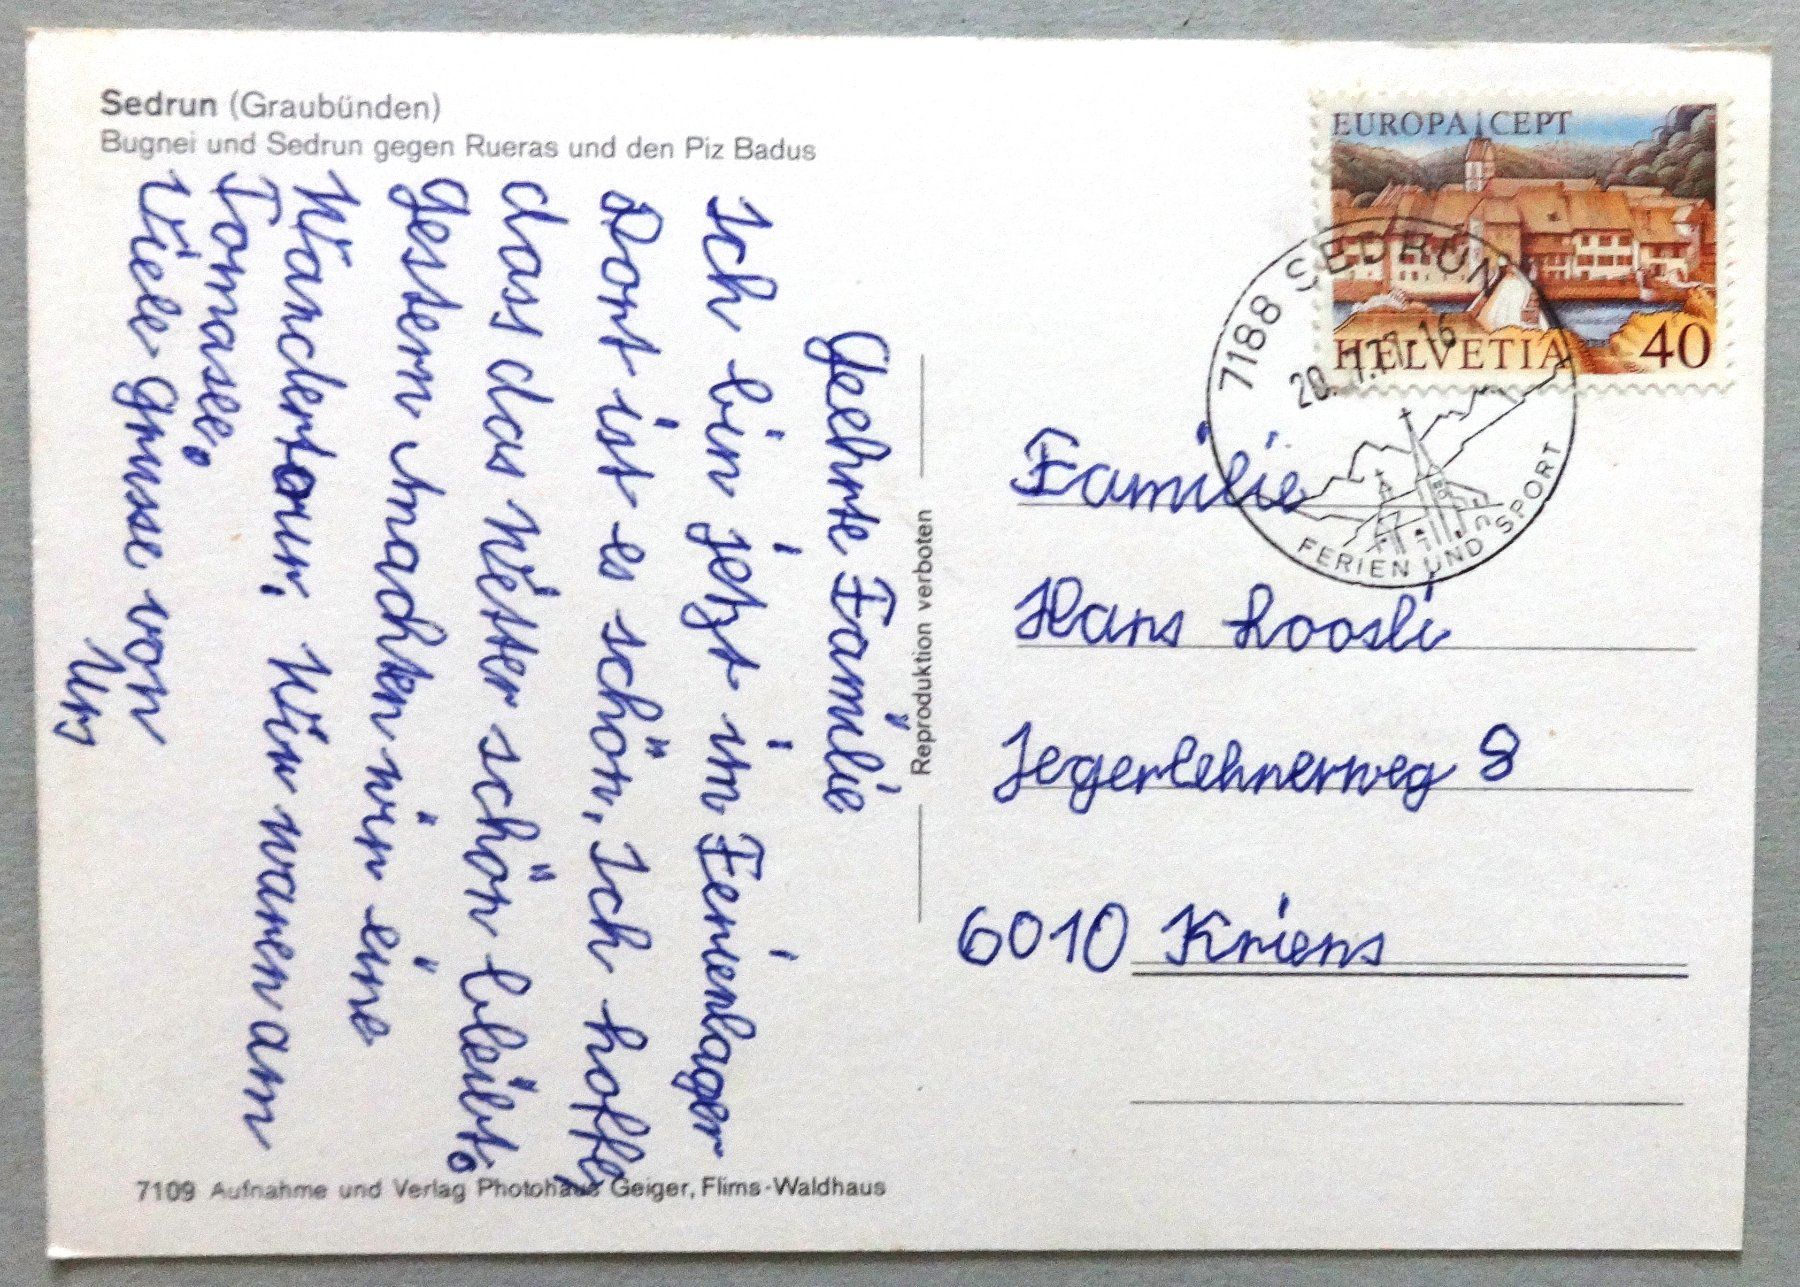 Sedrun (Graubünden)
Bugnei und Sedrun gegen Rueras und den Piz Badus
Geehrte Familie
Ich bin jetzt im Ferienlager
Dort ist es schön. Ich hoffe,
dass das Wetter schön bleibt.
Gestern machten wir eine
Wandertour. Wir waren am
Tomasee.
Viele Grüsse von
Urs
7109 Aufnahme und Verlag Photohaus Geiger, Flims-Waldhaus
Reproduktion verboten
EUROPA CEPT
HELVETIA 40
7188 SEDRUN
20. 7.77-16
FERIEN UND SPORT
Familie
Hans Loosli
Jegerlehnerweg 8
6010 Kriens